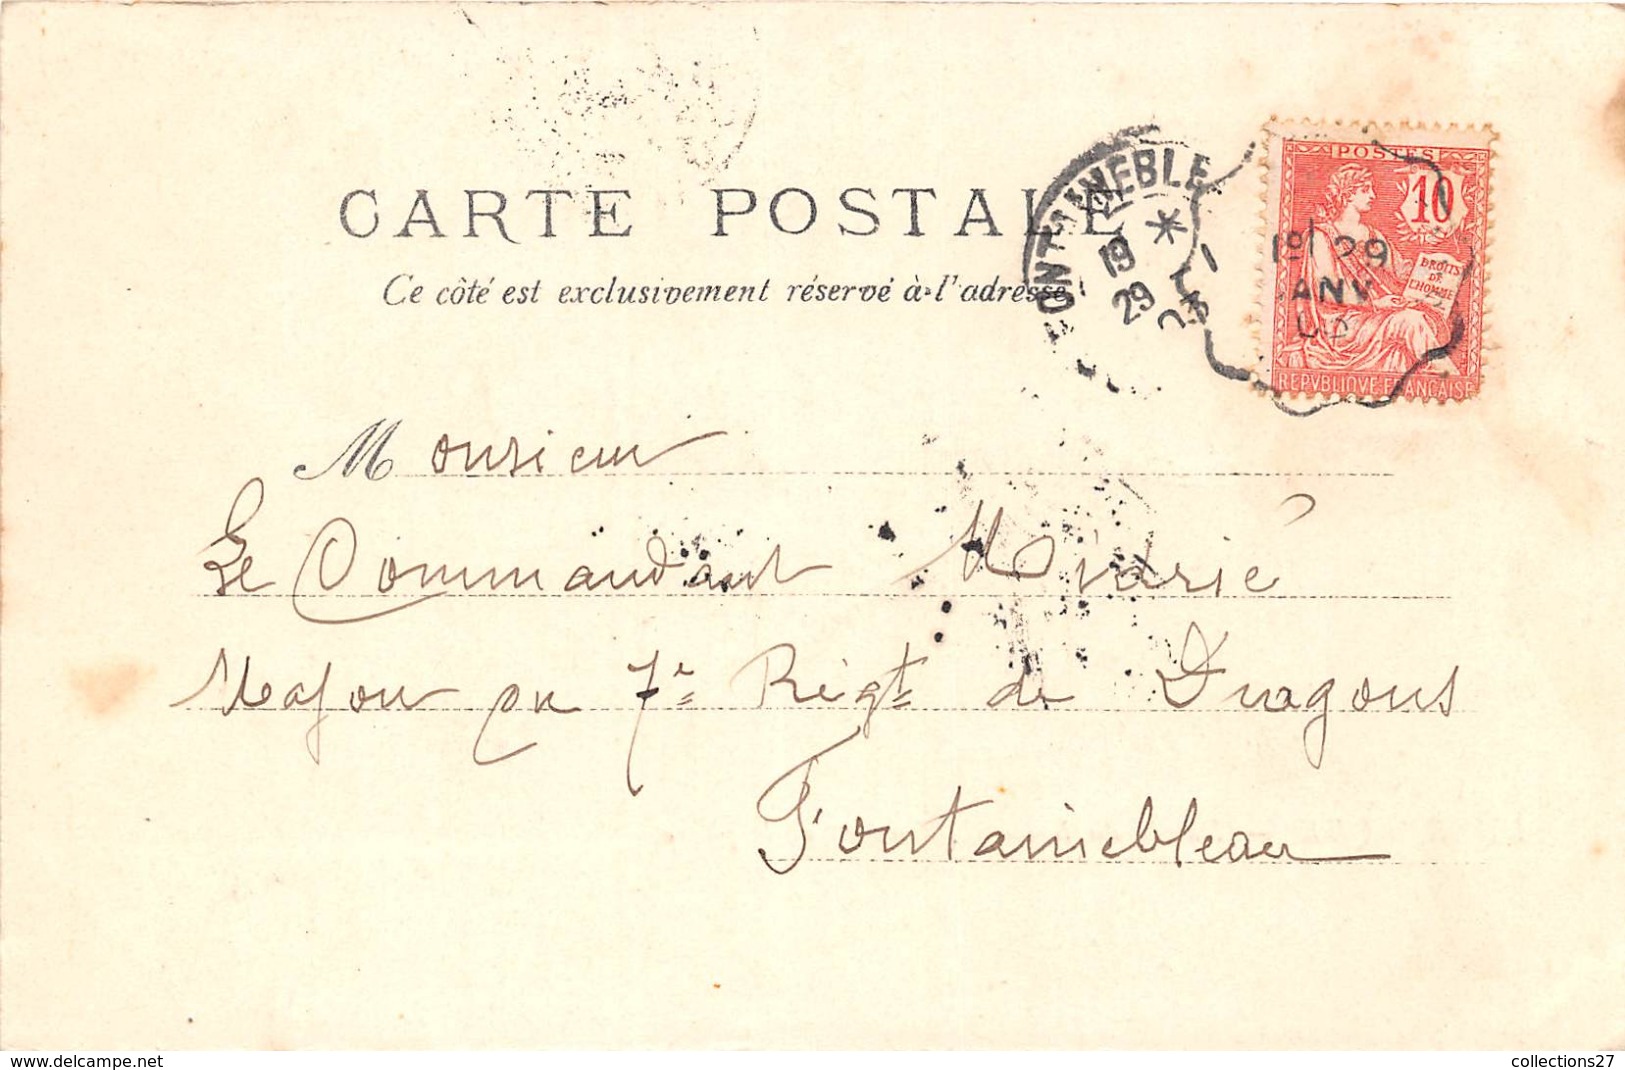 CARTE POSTALE
Ce côté est exclusivement réservé à l'adresse
POSTES
10
DROITS
DE
L'HOMME
REPVBLIQVE FRANÇAISE
29
19
29
03
Monsieur
Le Commandant
Major au 7e Régt de Dragons
Fontainebleau
delcampe.net
collections27